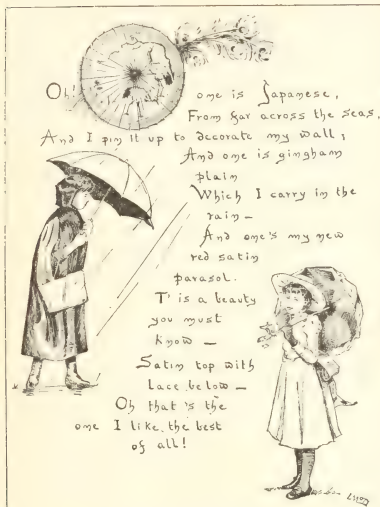 Oh! one is Japanese,
From far across the seas,
And I pin it up to decorate my wall;
And one is gingham
plain
Which I carry in the
rain —
And one's my new
red satin
parasol.
T' is a beauty
you must
know —
Satin top with
lace below —
Oh that's the
one I like the best
of all!